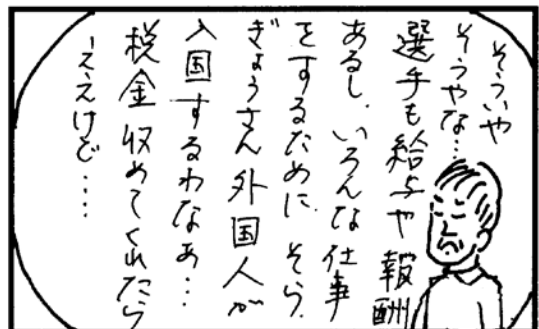 そういや
そうやな…
選手も給与や報酬
あるし、いろんな仕事
をするために、そら、
ぎょうさん外国人が
入国するわなあ…
税金収めてくれたら
ーええけど‥‥